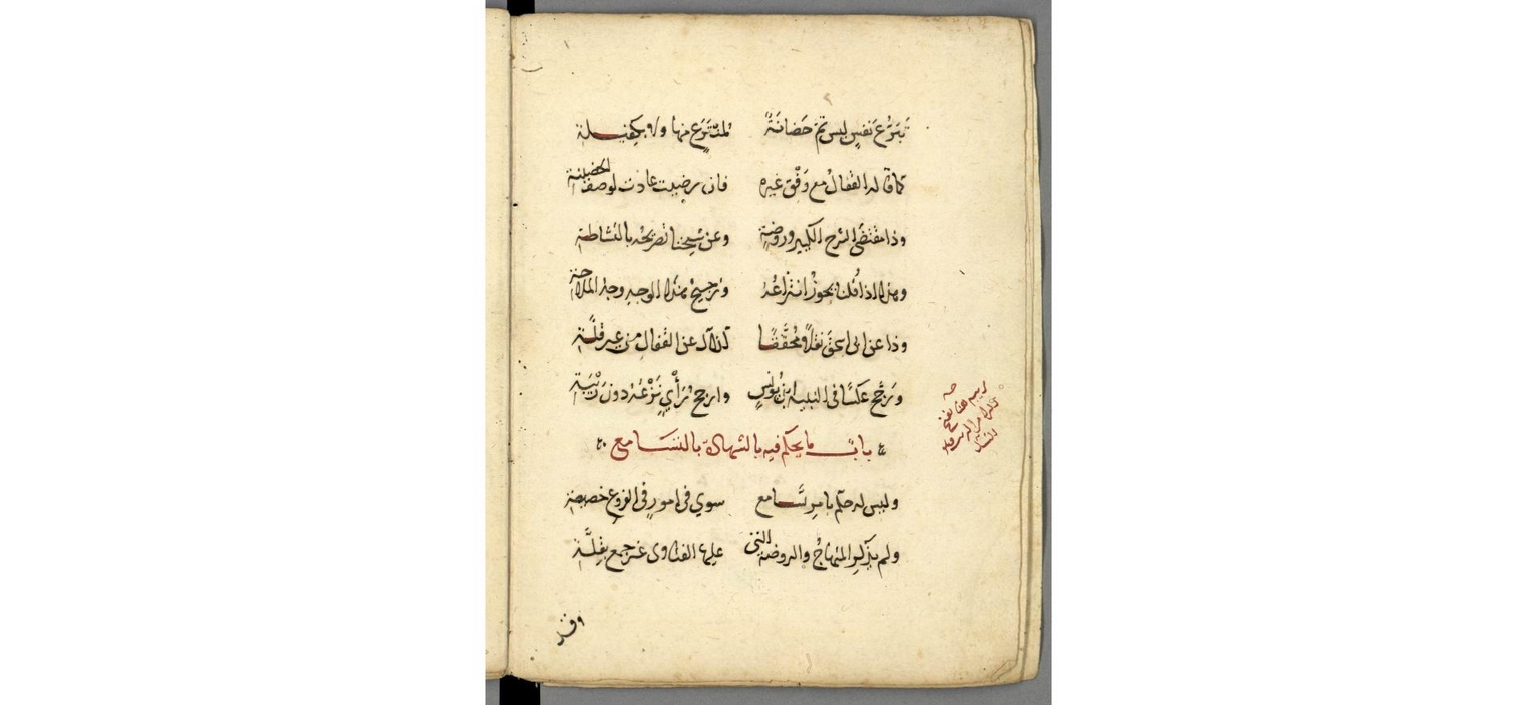 تبرع نفس ليس ثم حضانة لمتبرع منها ولا بكفيلة
كما قاله القفال مع وفق غيره فان رضيت عادت لوصف الحضينة
وذا مقتضى الشرح الكبير وروضة وعن شيخنا تصريحه بالنشاطة
وهذا اذا قلنا يجوز انتزاعه وترجيح هذا الوجه وجه الملاحة
وذا عن ابى اسحق نقلا محققا كذاك عن القفال من غير قلة
ورجح عكسا فى النبيه ابن يونس وارجح نزعه دون ريبة
باب ما يحكم فيه بالشهادة بالتسامع
وليس له حكم بامر تسامع سوي فى امور فى الفروع خصيصة
ولم يذكر المنهاج والروضة التى عليها الفتاوى غير جمع بقلة
وقد